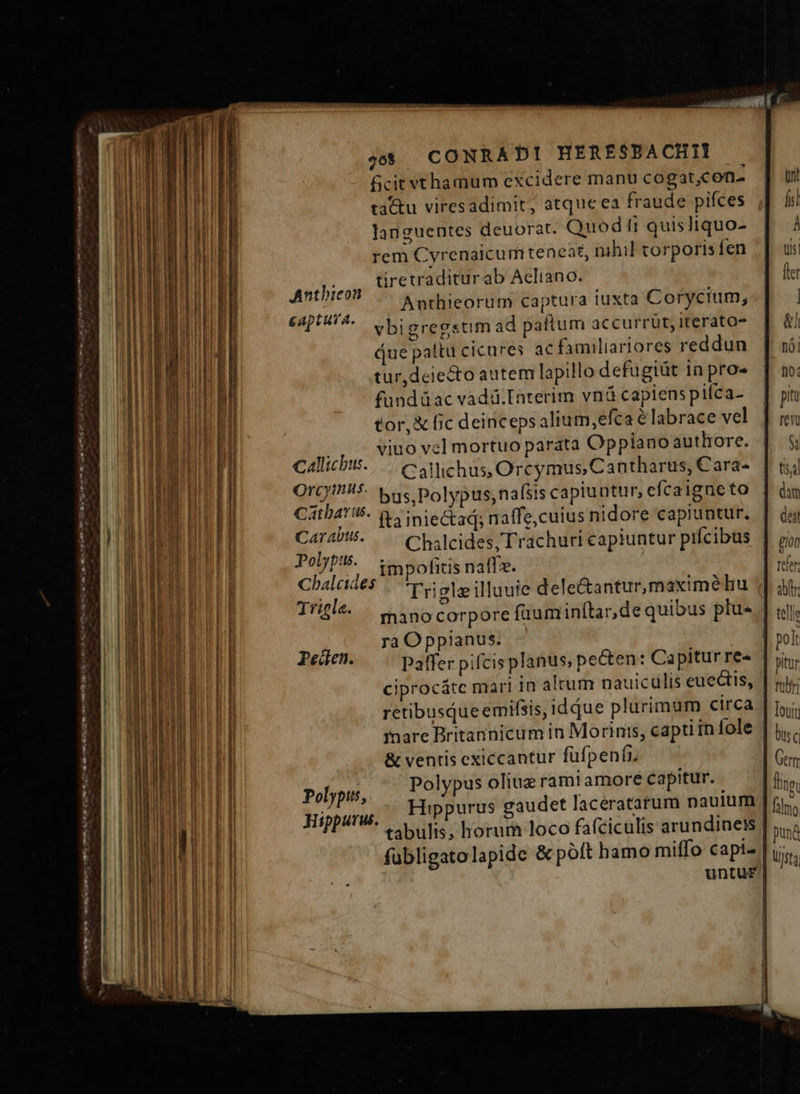 508 CONRADI HERESBACHII
ficit vt hamum excidere manu cogat, con-
tactu vires adimit, atque ea fraude piſces
languentes deuorat. Quod ſi quis liquo-
rem Cyrenaicum teneat, nihil torporis ſen
tire traditur ab Aeliano.
Anthieon
captura.
Anthieorum captura iuxta Corycium,
vbi gregatim ad paſtum accurrūt, iterato-
que paſtu cicures ac familiariores reddun
tur, deiecto autem lapillo defugiūt in pro-
fundū ac vadū. Interim vnū capiens piſca-
tor, & ſic deinceps alium, eſca è labrace vel
viuo vel mortuo parata Oppiano authore.
Callichus.
Orcymus.
Cātharus.
Callichus, Orcymus, Cantharus, Cara-
bus, Polypus, naſsis capiuntur, eſca igne to
ſta iniectaq; naſſę, cuius nidore capiuntur.
Carabus.
Polypus.
Chalcides, Trachuri capiuntur piſcibus
impoſitis naſſæ.
Chalcides
Trigle.
Triglæ illuuie delectantur, maximè hu
mano corpore ſuum inſtar, de quibus plu-
ra Oppianus.
Pecten.
Paſſer piſcis planus, pecten: Capitur re-
ciprocāte mari in altum nauiculis euectis,
retibusque emiſsis, idque plurimum circa
mare Britannicum in Morinis, capti in ſole
& ventis exiccantur ſuſpenſi.
Polypus,
Polypus oliuæ rami amore capitur.
Hippurus.
Hippurus gaudet laceratarum nauium
tabulis, horum loco faſciculis arundineis
ſubligato lapide & pòſt hamo miſſo capi-
untur